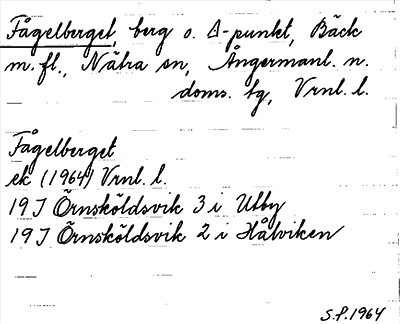 Fågelberget, berg o. Δ-punkt, Bäck
m. fl., Nätra sn, Ångermanl. n.
doms. tg, Vrnl. l.
Fågelberget
ek (1964) Vrnl. l.
19 J Örnsköldsvik 3 i Utby
19 J Örnsköldsvik 2 i Hålviken
S.P. 1964